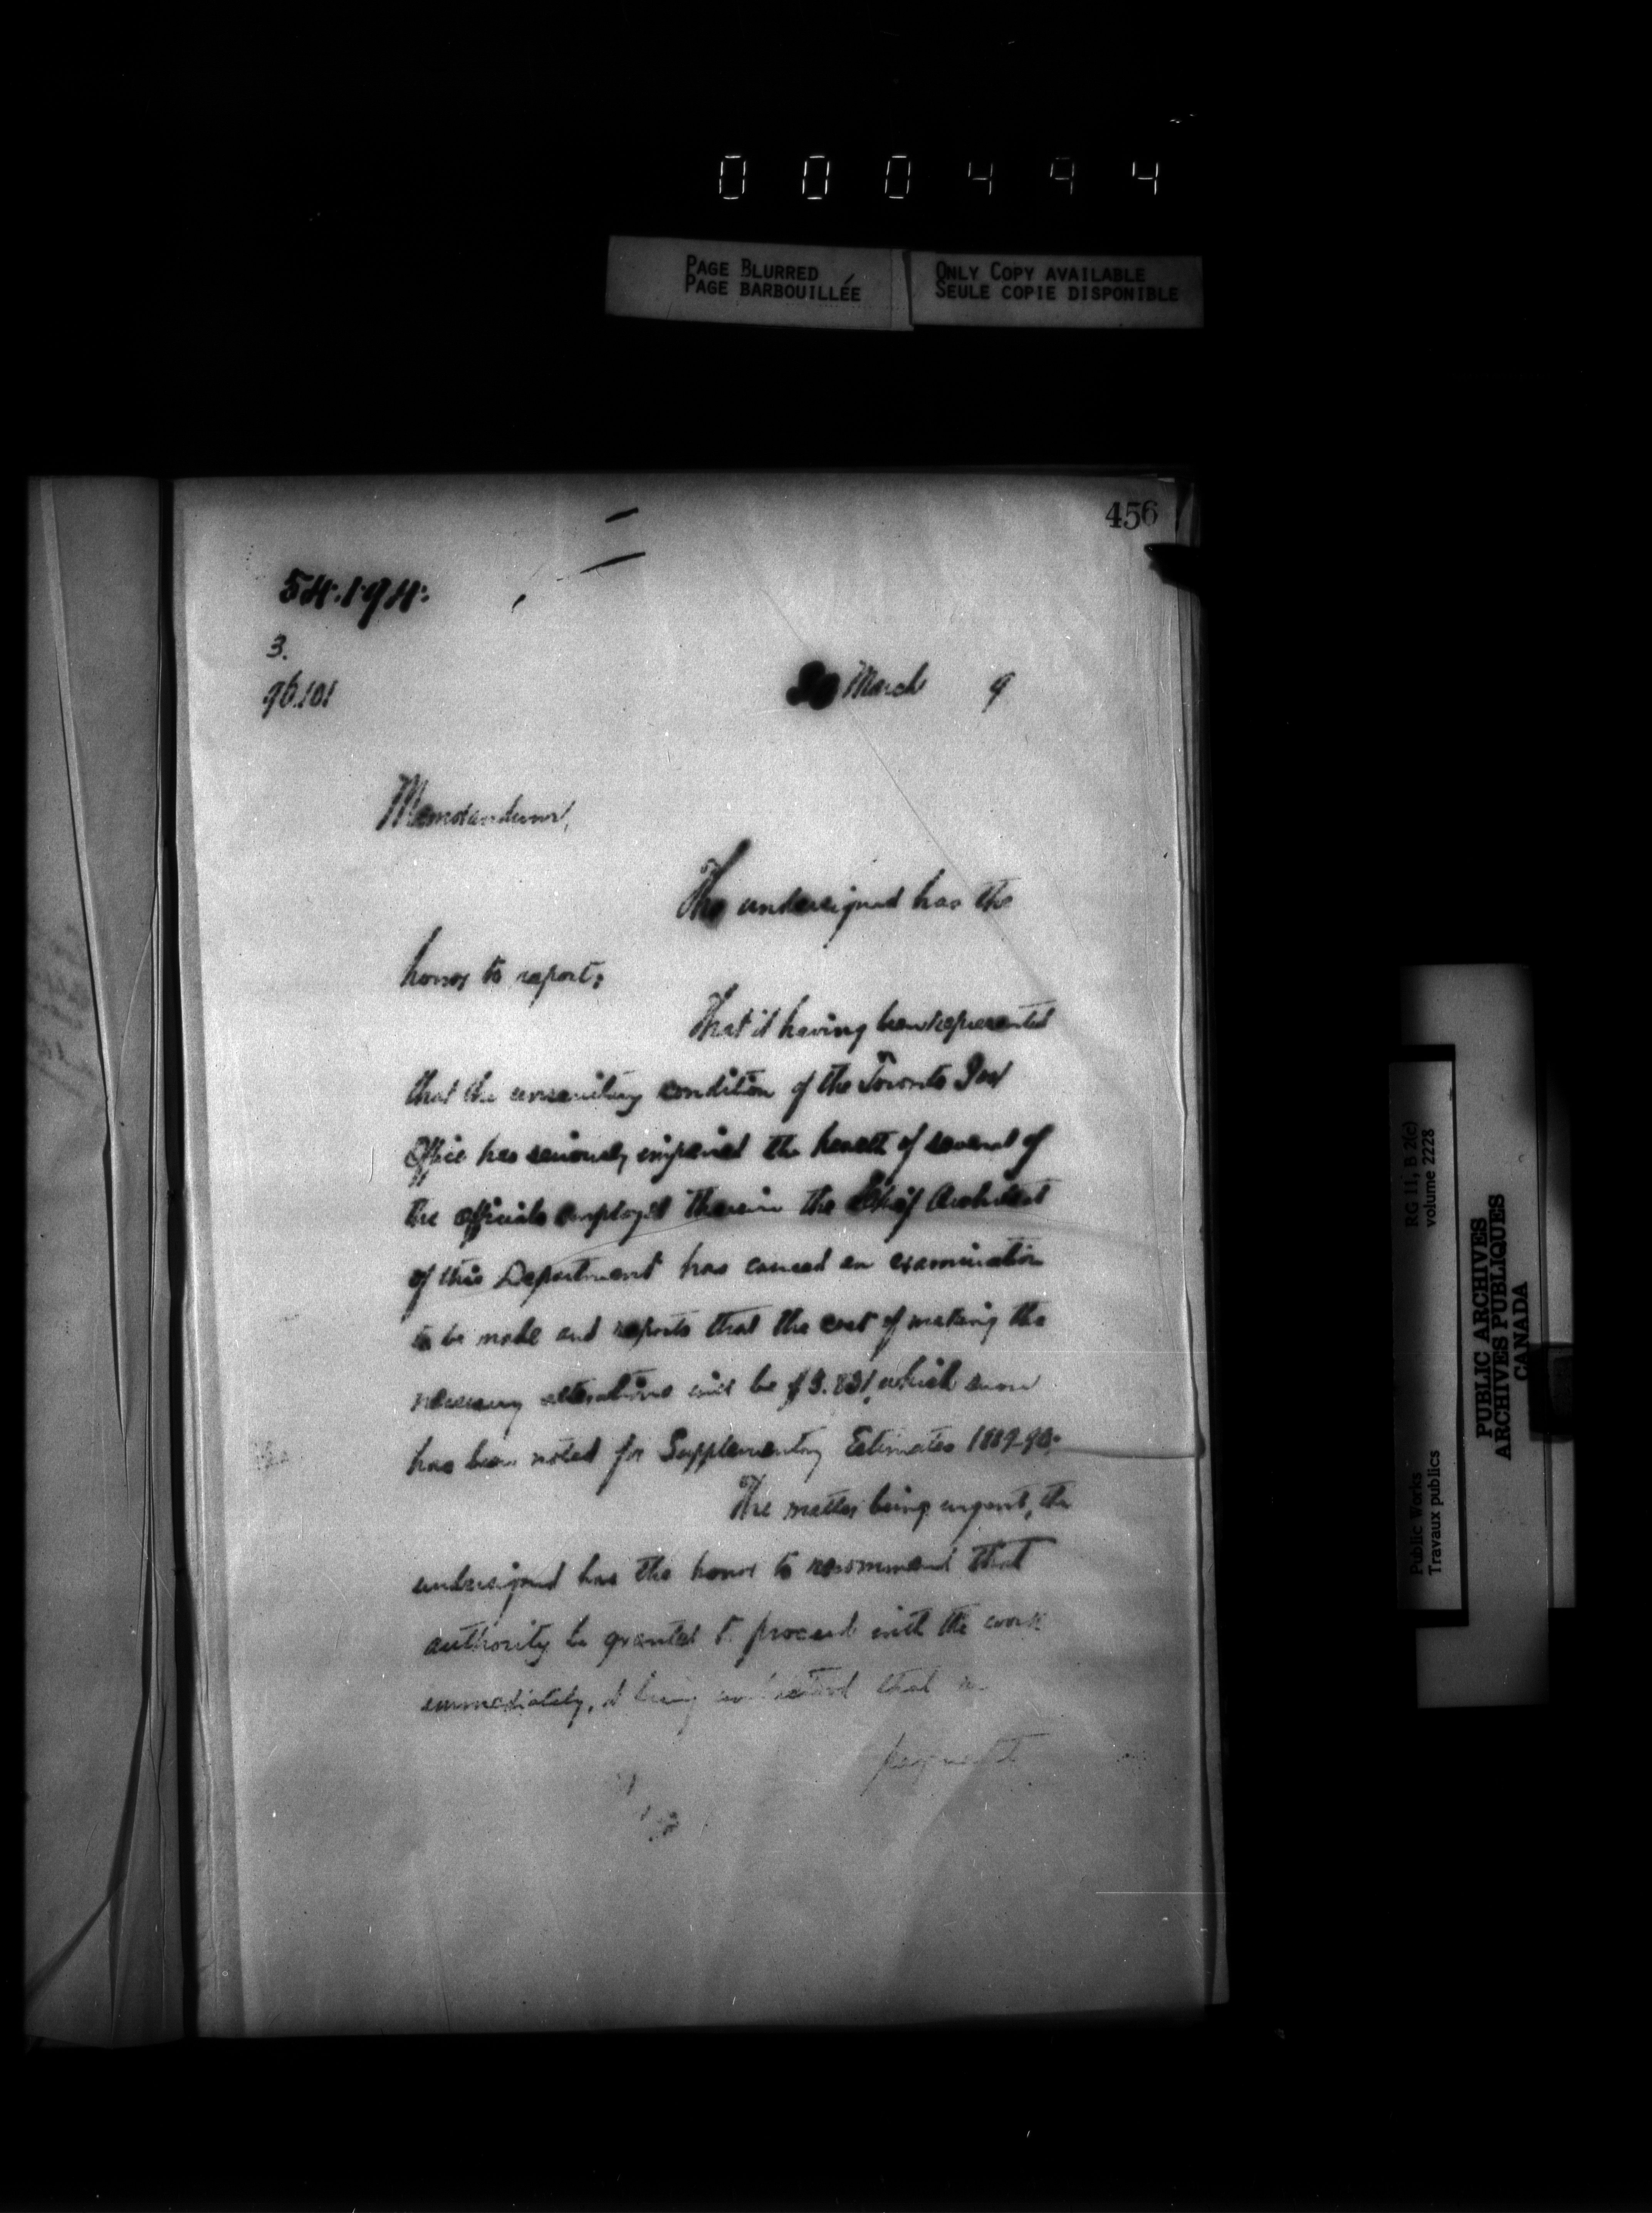 000494
PAGE BLURRED
PAGE BARBOUILLÉE
ONLY COPY AVAILABLE
SEULE COPIE DISPONIBLE
456
54.194.
3.
96.101
20 March 9
Memorandum,
The undersigned has the
honor to report:
That it having been represented
that the unsanitary condition of the Toronto Post
Office has seriously impaired the health of several of
the officials employed therein the Chief Architect
of this Department has caused an examination
to be made and reports that the cost of making the
necessary alterations will be $3.831, which sum
has been noted for Supplementary Estimates 1889-90.
The matter being urgent, the
undersigned has the honor to recommend that
authority be granted to proceed with the work
immediately, it being understood that
RG 11, B 2(c)
volume 2228
Public Works
Travaux publics
PUBLIC ARCHIVES
ARCHIVES PUBLIQUES
CANADA